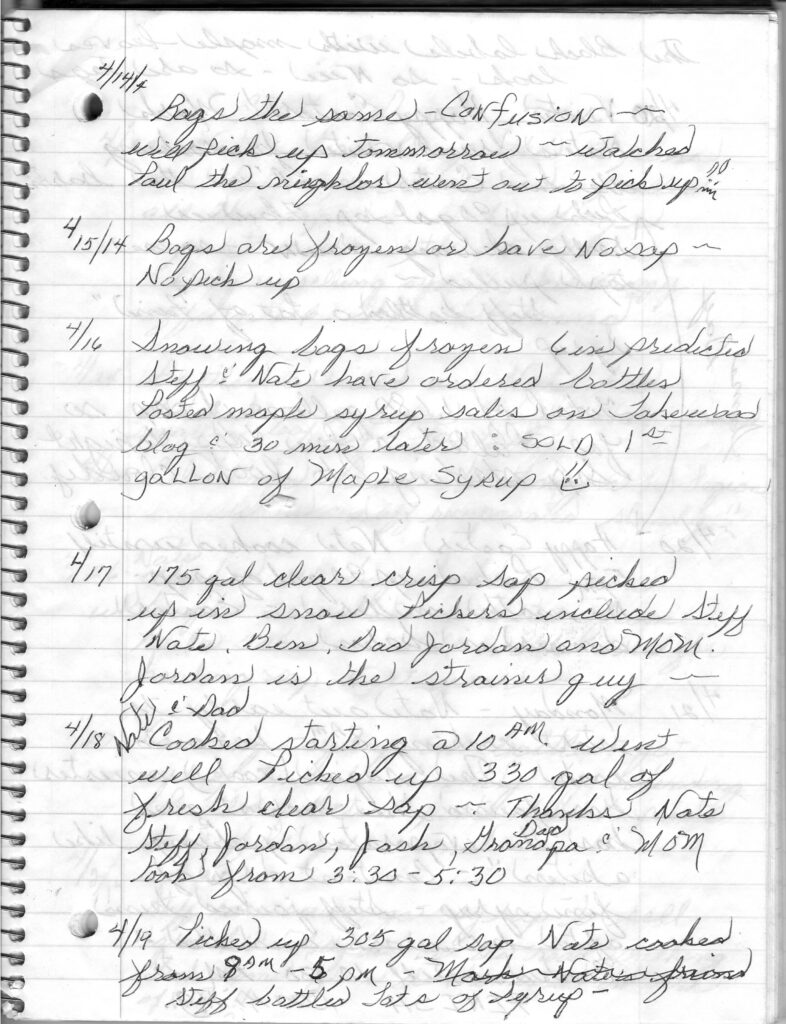 4/14/14
Bags the same - Confusion ~
will pick up tommorrow ~ watched
Paul the nieghbor went out to pick up
4/15/14 Bags are frozen or have No sap ~
No pick up
4/16 Snowing bags frozen 6 in predicted
Steff & Nate have ordered battles
Posted maple syrup sales on Lakewood
blog & 30 min later : SOLD 1st
gallon of Maple Syrup !!
4/17 175 gal clear crisp sap picked
up in snow Pickers include Steff
Nate, Ben, Dad Jordan and MOM.
Jordan is the strainer guy ~
Nate & Dad
4/18 Cooked starting @ 10 AM. Went
well Picked up 330 gal of
fresh clear sap ~ Thanks Nate
Steff, Jordan, Josh, Grandpa Dad & MOM
took from 3:30 - 5:30
4/19 Picked up 305 gal sap Nate cooked
from 8 AM - 5 pm - Mark Nates friend
Steff battles Lots of Syrup -